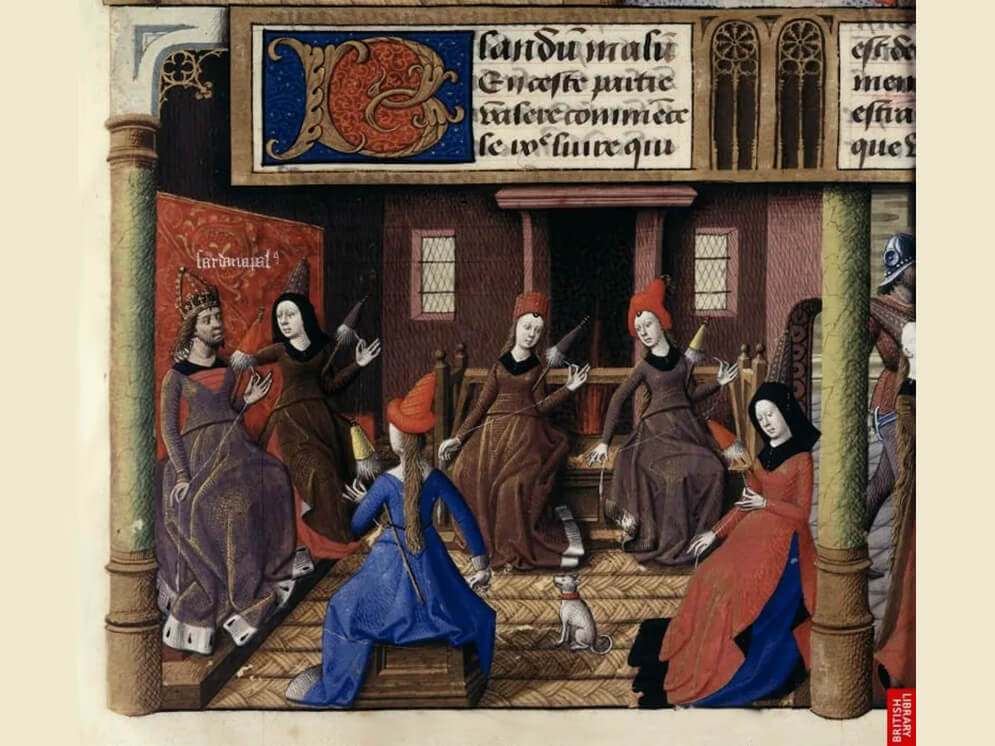 Blandū malū
En ceste partie
valere commēce
le ixᵉ liure qui
est de
men
estra
que
sardanapalꝰ
BRITISH
LIBRARY